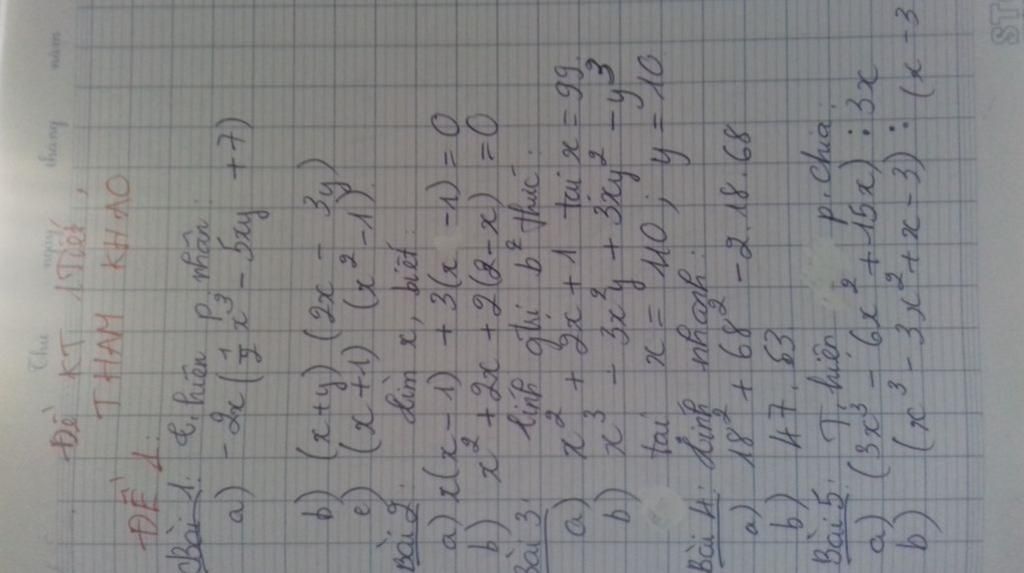 Thứ ngày tháng năm
Đề KT 1 Tiết
THAM KHẢO
ĐỀ 1:
Bài 1: T. hiện p. nhân:
a) -2x (1/2 x³ - 5xy + 7)
b) (x+y) (2x - 3y)
c) (x+1) (x² - 1)
Bài 2: Tìm x, biết:
a) x(x-1) + 3(x-1) = 0
b) x² + 2x + 2(2-x) = 0
Bài 3: Tính gtrị b² thức:
a) x² + 2x + 1 tại x = 99
b) x³ - 3x²y + 3xy² - y³
tại x = 110; y = 10
Bài 4: Tính nhanh:
a) 18² + 68² - 2.18.68
b) 47.53
Bài 5: T. hiện p. chia:
a) (3x³ - 6x² + 15x) : 3x
b) (x³ - 3x² + x - 3) : (x - 3
ST